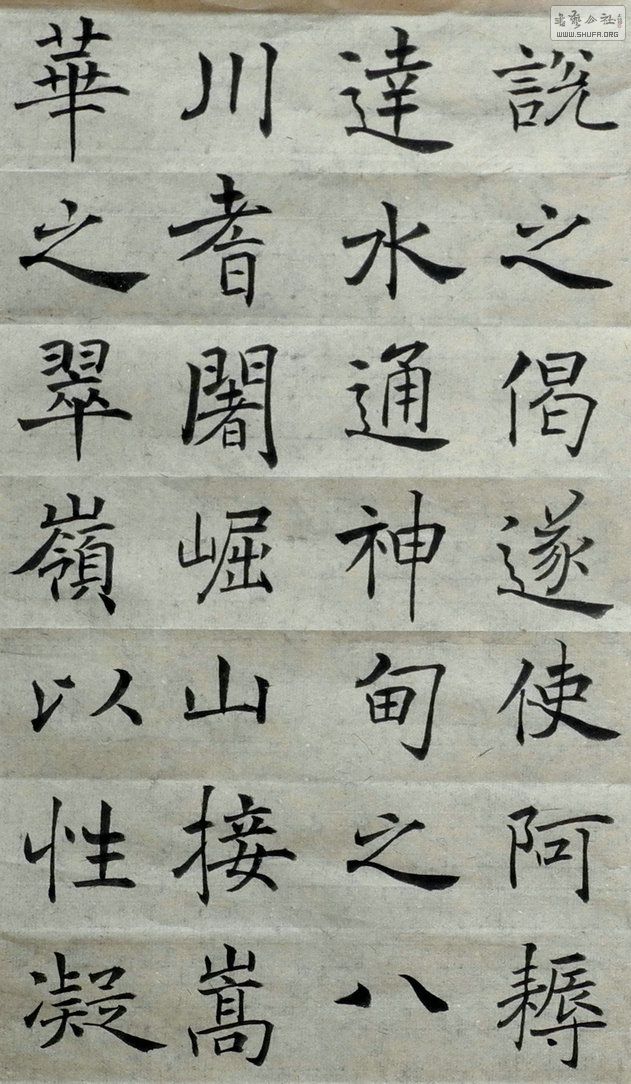 說之偈遂使阿耨
達水通神甸之八
川耆闍崛山接嵩
華之翠嶺以性凝
WWW.SHUFA.ORG